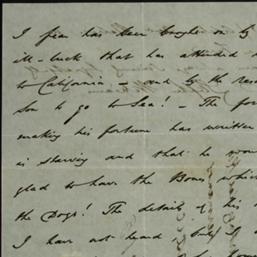 I fear has been brought on by
ill-luck that has attended
to California – and by the
son to go to Sea! – The
making his fortune has written
is starving and that he
glad to have the Bones which
the Dogs! The details of his
I have not heard